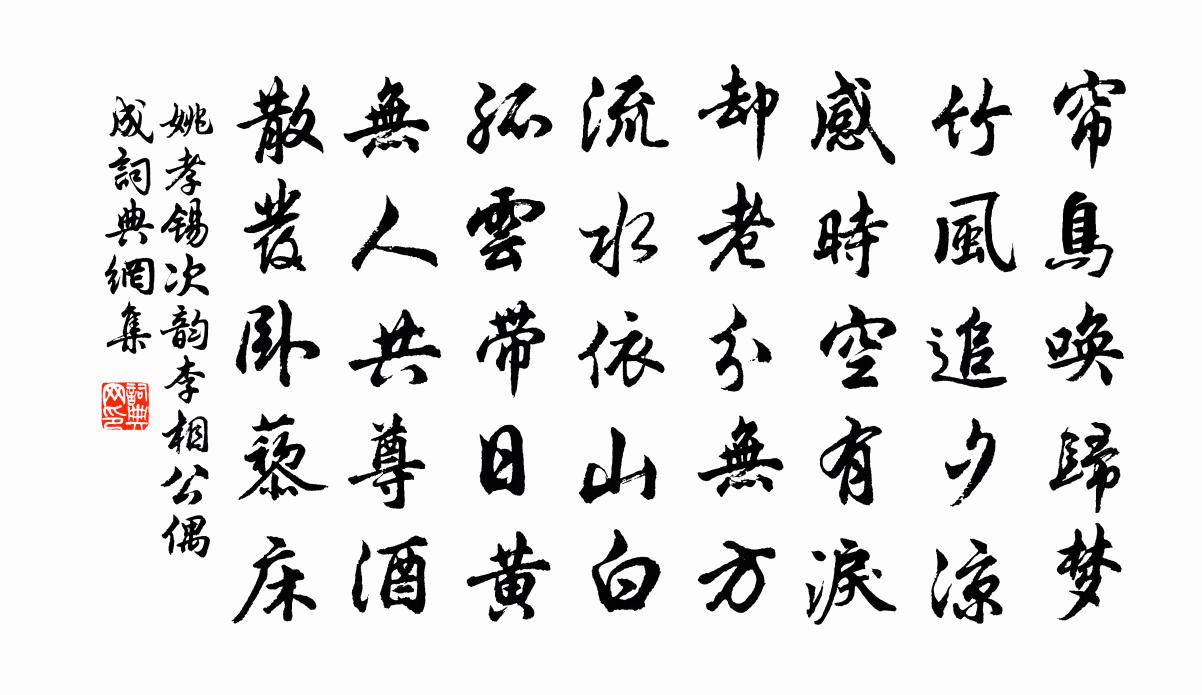 帘鳥喚歸梦
竹風追夕涼
感時空有淚
却老分無方
流水依山白
孤雲带日黄
無人共尊酒
散發卧藜床
姚孝錫次韵李相公偶
成詞典網集
詞典
网印